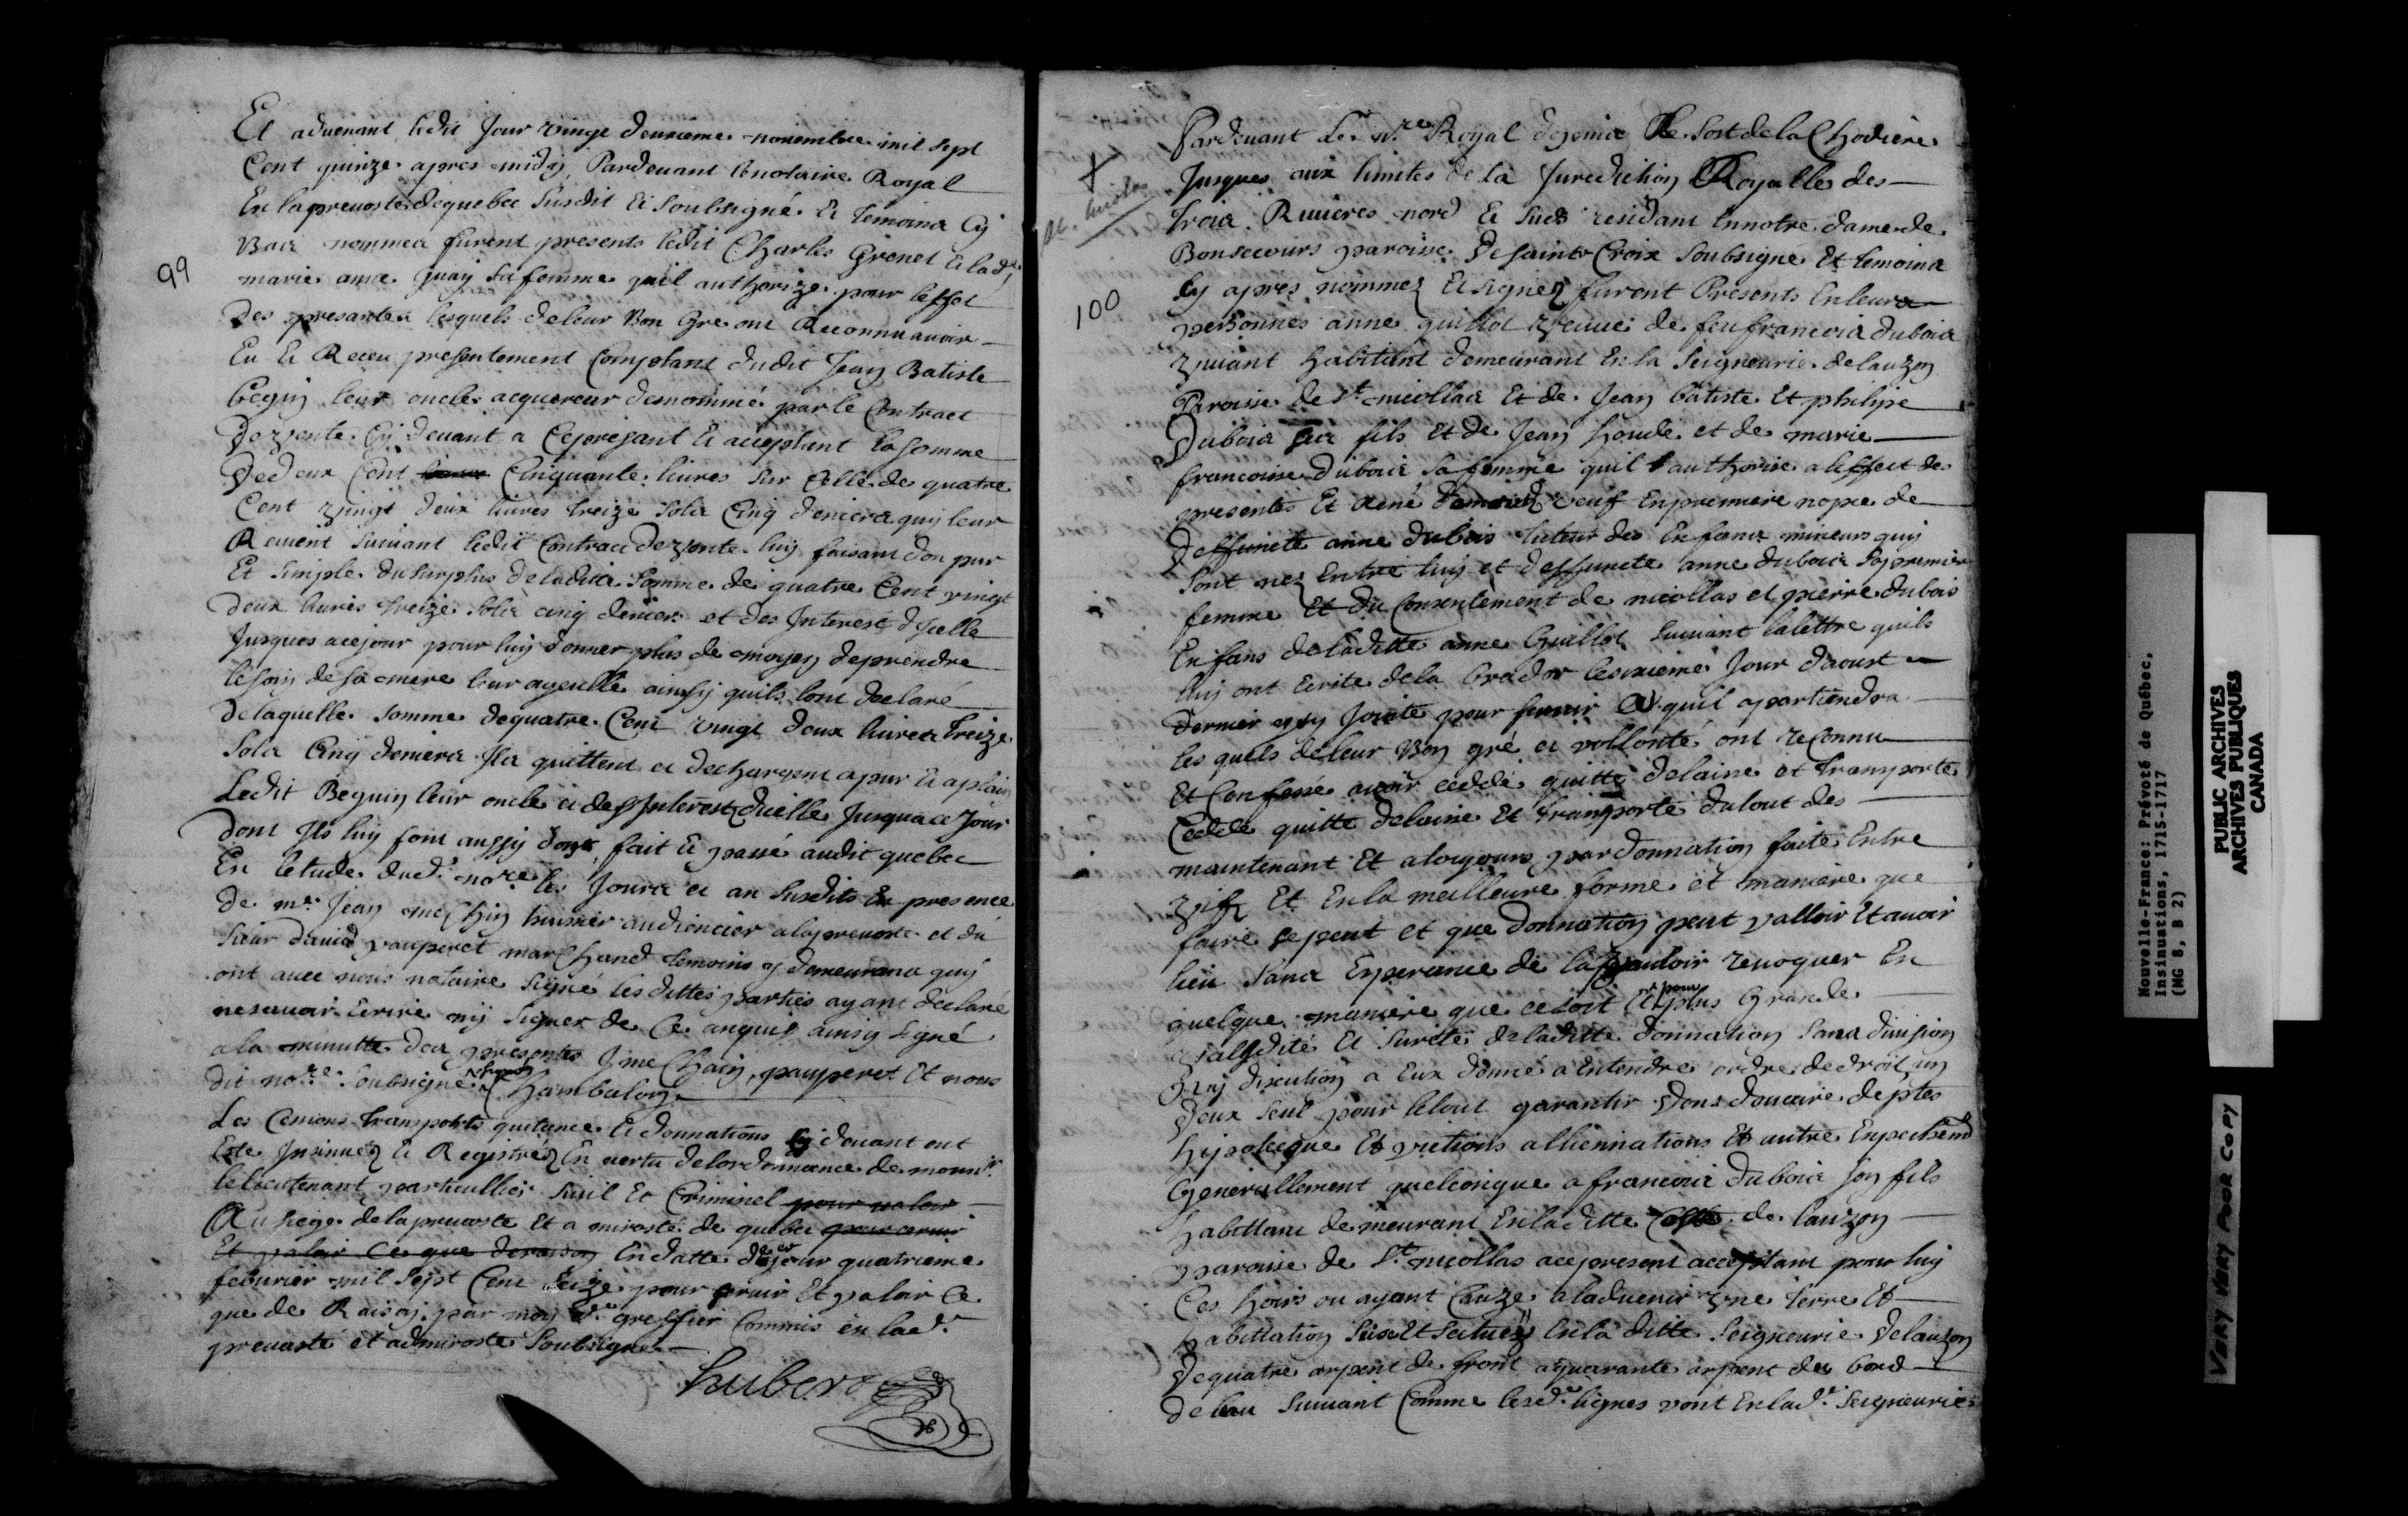 99
Et aduenant ledit Jour vingt deuxieme nouembre mil sept
Cent quinze apres midy, Pardeuant lenotaire Royal
En laprevosté dequebec susdit Et soubsigné Et temoins Cy
Bas nommes furent presents ledit Charles Grenet Et lad.e
marie anne guay sa femme quil authorize pour leffet
Des presantes lesquels deleur Bon Gre ont Reconnu auoir
Eu Et Receu presentement Comptant dudit Jean Batiste
Beguin leur oncle acquereur denommé par le Contract
De vente Cy deuant a Cepresant Et acceptant la somme
De deux Cent Cinquante liures sur Celle de quatre
Cent vingt deux liures treize sols Cinq deniers quy leur
Reuient suiuant ledit Contract de vente luy faisant don pur
Et simple du surplus de laditte somme de quatre Cent vingt
deux liures treize sols cinq deniers et des Interest d'Icelle
Jusques acejour pour luy donner plus de moyen deprendre
le soin de sa mere leur ayeulle ainsy quils lont declaré
delaquelle somme dequatre Cent vingt deux liures treize
sols Cinq deniers Ils quittent et dechargent apur Et aplain
Ledit Beguin leur oncle et des Interest dicelle Jusqua ce Jour
dont Ils luy font aussy don, fait Et passé audit quebec
En letude dud. no.re les Jours et an susdits En presence
de m.e Jean meschin huissier audiencier alaprevosté et du
sieur dauid pauperet marchand temoins y demeurans quy
ont auec nous notaire signé les dittes parties ayant declaré
nesauoir Ecrire ny signer de Ce enquis ainsy signé
a la minutte des presentes J meschin, pauperet Et nous
dit no.re soubsigné Chambalon
Les Cessions transports quitance Et donnations Cy deuant ont
Este Insinuéz Et Registréz En vertu delordonnance de monsr
le lieutenant particullier siuil Et Criminel pour valoir
Au siege de la prevosté Et amirosté de quebec pour seruir
Et valoir Ce que de raison En datte de ce jour quatrieme
feburier mil sept Cent seize pour seruir Et valoir Ce
que de Raison par moy greffier Commis en lad.e
prevosté et admirosté soubsigné
hubert
X
St. nicolas
100
Pardeuant Le n.re Royal depuis Le sort de la Chodiere
Jusques aux limites de la Jurediction Royalle des
trois Riuieres nord Et sud residant En notre dame de
Bonsecours paroisse De sainte Croix soubsigné Et temoins
Cy apres nommez Et signez furent Presents En leurs
personnes anne guillot veuue de feu francois dubois
viuant habitant demeurant En la seigneurie de lauzon
Paroisse de St nicollas Et de Jean batiste Et philipe
Dubois ses fils Et de Jean houde et de marie
francoise dubois sa femme quil authorise a leffect des
presentes Et René veuf En premiere nopce de
Deffuncte anne dubois tuteur des Enfans mineurs quy
sont nez Entre luy et deffuncte anne dubois sa premiere
femme Et du Consentement de nicollas et pierre dubois
Enfans de laditte anne Guillot suiuant la lettre quils
luy ont Ecrite de la brador Jour daoust
dernier Joincte pour seruir A quil apartiendra
les quels deleur Bon gré et vollonté ont reconnu
Et Confessé auoir ceddé quitté delaissé et transporté
Cedde quitte delaisse Et transporte du tout des
maintenant Et a toujours par donnation faite Entre
vifs Et En la meilleure forme et maniere que
faire se peut et que donnation peut valloir Et auoir
lieu sans Esperance de la pouuoir reuoquer En
quelque maniere que ce soit Et pour plus Grande
validité Et sureté de laditte donnation sans diuision
ny discution a Eux donné a Entendre ordre de droit un
deux seul pour le tout garantir Dons douaire deptes
hipoteque Euictions alliennations Et autre Enpechem.t
Generallement quelconque a francois dubois son fils
habittant demeurant En laditte Coste de lauzon
paroisse de St nicollas ace present acceptant pour luy
Ces hoirs ou ayant Cauze a laduenir vne terre Et
habittation size Et scituez En la ditte seigneurie De lauzon
De quatre arpent de front a quarante arpent des bord
de leau suiuant Comme les d.e lignes vont En lad.e seigneurie
Nouvelle-France: Prévoté de Québec,
Insinuations, 1715-1717
(MG 8, B 2)
PUBLIC ARCHIVES
ARCHIVES PUBLIQUES
CANADA
VERY VERY POOR COPY